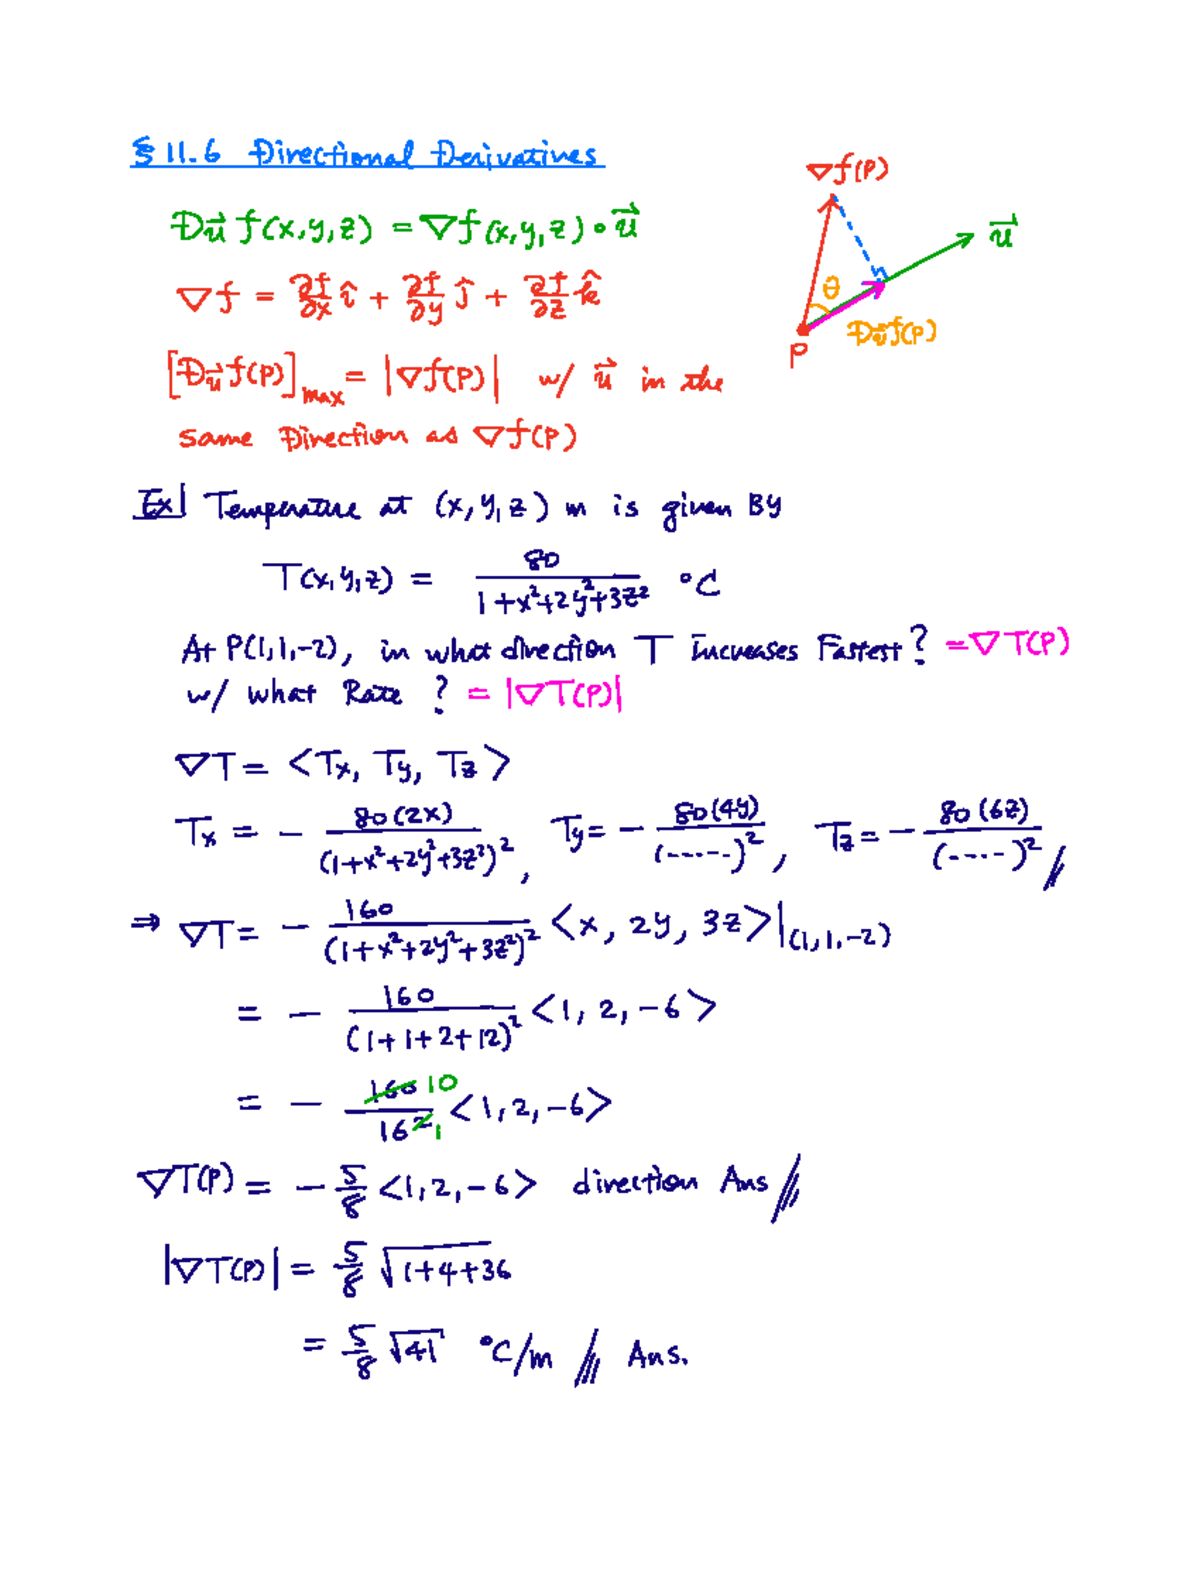 § 11.6 Directional Derivatives
D_u⃗ f(x,y,z) = ∇f(x,y,z) • u⃗
∇f = ∂f/∂x î + ∂f/∂y ĵ + ∂f/∂z k̂
[D_u⃗ f(P)]_max = |∇f(P)| w/ u⃗ in the
same Direction as ∇f(P)
∇f(P)
u⃗
θ
D_u⃗ f(P)
P
Ex| Temperature at (x,y,z) m is given By
T(x,y,z) = 80/(1+x²+2y²+3z²) °C
At P(1,1,-2), in what direction T Increases Fastest? = ∇T(P)
w/ what Rate? = |∇T(P)|
∇T = <Tx, Ty, Tz>
Tx = - 80(2x)/(1+x²+2y²+3z²)², Ty = - 80(4y)/(-----)², Tz = - 80(6z)/(----)² //
⇒ ∇T = - 160/(1+x²+2y²+3z²)² <x, 2y, 3z>|(1,1,-2)
= - 160/(1+1+2+12)² <1, 2, -6>
= - 160 10/16² 1 <1, 2, -6>
∇T(P) = - 5/8 <1, 2, -6> direction Ans //
|∇T(P)| = 5/8 √(1+4+36)
= 5/8 √41 °C/m // Ans.